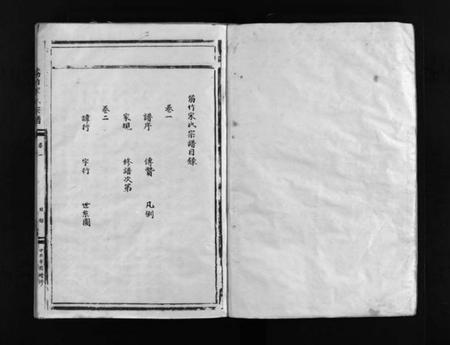 筋竹宋氏宗譜目錄
卷一
譜序 傳贊 凡例
家規 修譜次第
卷二
諱行 字行 世系圖
筋竹宋氏宗譜
卷一
目錄